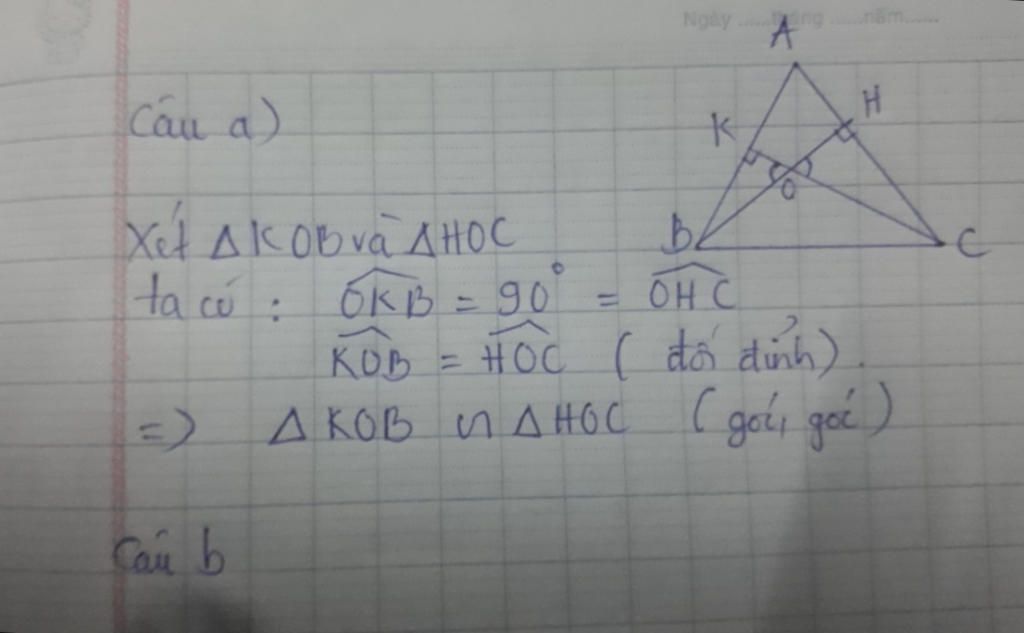 Ngày ......tháng ......năm......
A
H
K
O
B
C
Câu a)
Xét ΔKOB và ΔHOC
ta có : OKB = 90° = OHC
KOB = HOC ( đối đỉnh) .
=> Δ KOB ᔕ Δ HOC ( góc, góc )
Câu b